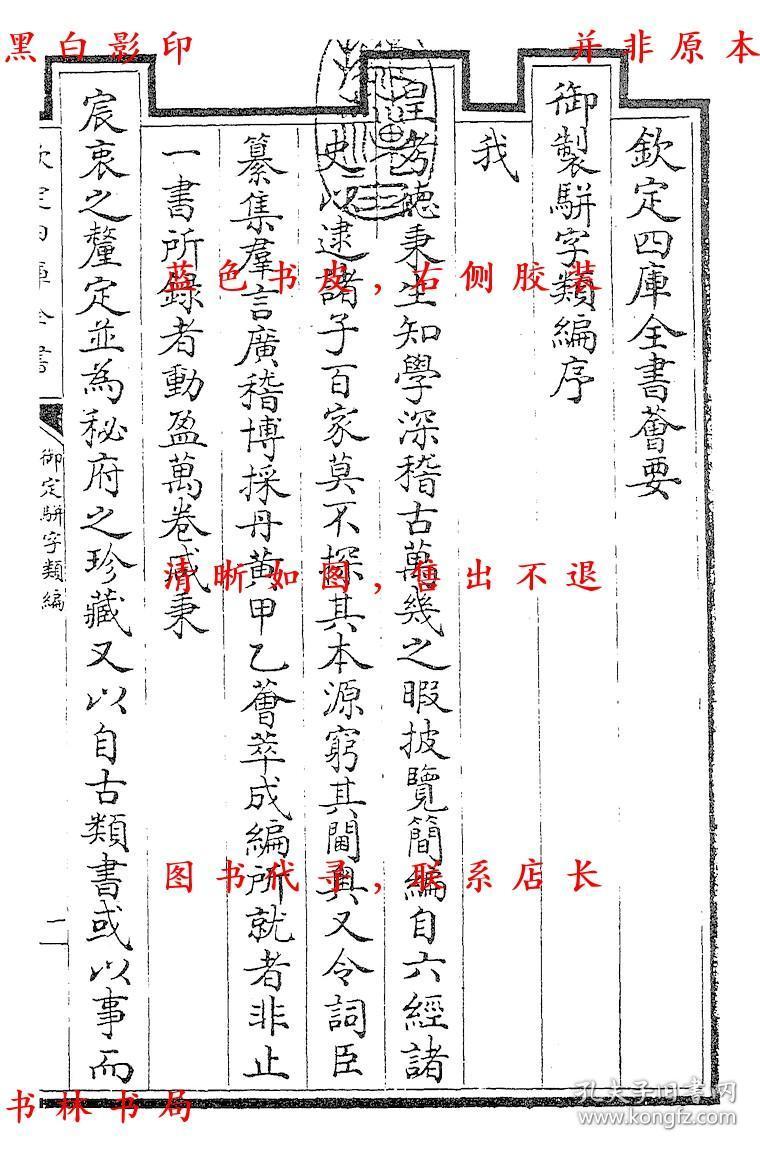 黑白影印
并非原本
欽定四庫全書薈要
御製駢字類編序
我
皇考德秉生知學深稽古萬幾之暇披覽簡編自六經諸
史以逮諸子百家莫不探其本源窮其閫奧又令詞臣
纂集羣言廣稽博採丹黄甲乙薈萃成編所就者非止
一書所錄者動盈萬卷咸秉
宸衷之釐定並為秘府之珍藏又以自古類書或以事而
欽定四庫全書
御定駢字類編
一
蓝色书皮,右侧胶装
清晰如图,售出不退
图书代寻,联系店长
书林书局
孔夫子旧书网
www.kongfz.com